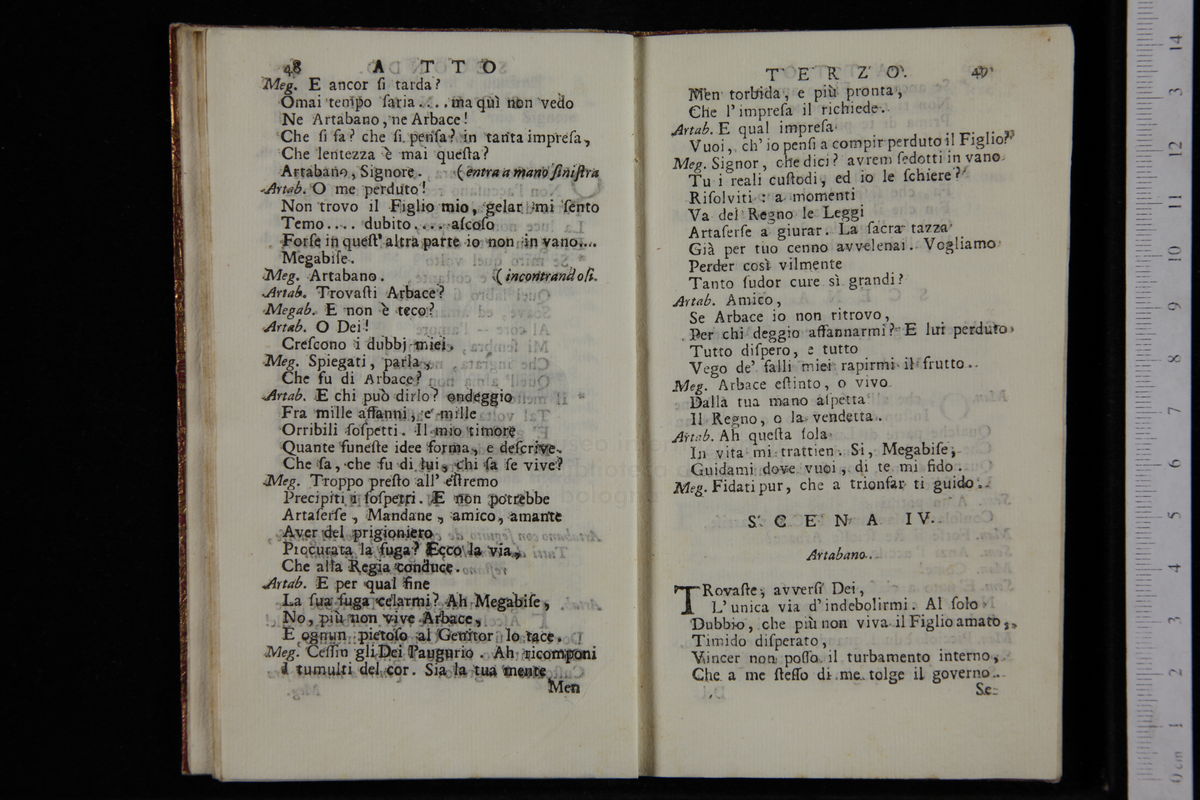 48 A T T O
Meg. E ancor ſi tarda?
Omai tempo ſaria.... ma quì non vedo
Ne Artabano, ne Arbace!
Che ſi fa? che ſi penſa? in tanta impreſa,
Che lentezza è mai queſta?
Artabano, Signore. (entra a mano ſiniſtra
Artab. O me perduto!
Non trovo il Figlio mio, gelar mi ſento
Temo.... dubito.... aſcoſo
Forſe in queſt' altra parte io non in vano....
Megabiſe.
Meg. Artabano. (incontrandoſi.
Artab. Trovaſti Arbace?
Megab. E non è teco?
Artab. O Dei!
Creſcono i dubbj miei.
Meg. Spiegati, parla,
Che fu di Arbace?
Artab. E chi può dirlo? ondeggio
Fra mille affanni, e mille
Orribili ſoſpetti. Il mio timore
Quante funeſte idee forma, e deſcrive.
Che ſa, che fu di lui, chi ſa ſe vive?
Meg. Troppo preſto all' eſtremo
Precipiti i ſoſpetri. E non potrebbe
Artaſerſe, Mandane, amico, amante
Aver del prigioniero
Procurata la fuga? Ecco la via,
Che alla Regia conduce.
Artab. E per qual fine
La ſua fuga celarmi? Ah Megabiſe,
No, più non vive Arbace,
E ognun pietoſo al Genitor lo tace.
Meg. Ceſſin gli Dei l'augurio. Ah ricomponi
I tumulti del cor. Sia la tua mente
Men
T E R Z O. 49
Men torbida, e più pronta,
Che l'impreſa il richiede.
Artab. E qual impreſa
Vuoi, ch'io penſi a compir perduto il Figlio?
Meg. Signor, che dici? avrem ſedotti in vano
Tu i reali cuſtodi, ed io le ſchiere?
Riſolviti: a momenti
Va del Regno le Leggi
Artaſerſe a giurar. La ſacra tazza
Già per tuo cenno avvelenai. Vogliamo
Perder così vilmente
Tanto ſudor cure sì grandi?
Artab. Amico,
Se Arbace io non ritrovo,
Per chi deggio affannarmi? E lui perduto
Tutto diſpero, e tutto
Vego de' falli miei rapirmi il frutto.
Meg. Arbace eſtinto, o vivo
Dalla tua mano aſpetta
Il Regno, o la vendetta.
Artab. Ah queſta ſola
In vita mi trattien. Si, Megabiſe,
Guidami dove vuoi, di te mi fido.
Meg. Fidati pur, che a trionfar ti guido.
S C E N A IV.
Artabano.
TRovaſte, avverſi Dei,
L'unica via d'indebolirmi. Al ſolo
Dubbio, che più non viva il Figlio amato,
Timido diſperato,
Vincer non poſſo il turbamento interno,
Che a me ſteſſo di me tolge il governo.
Se-